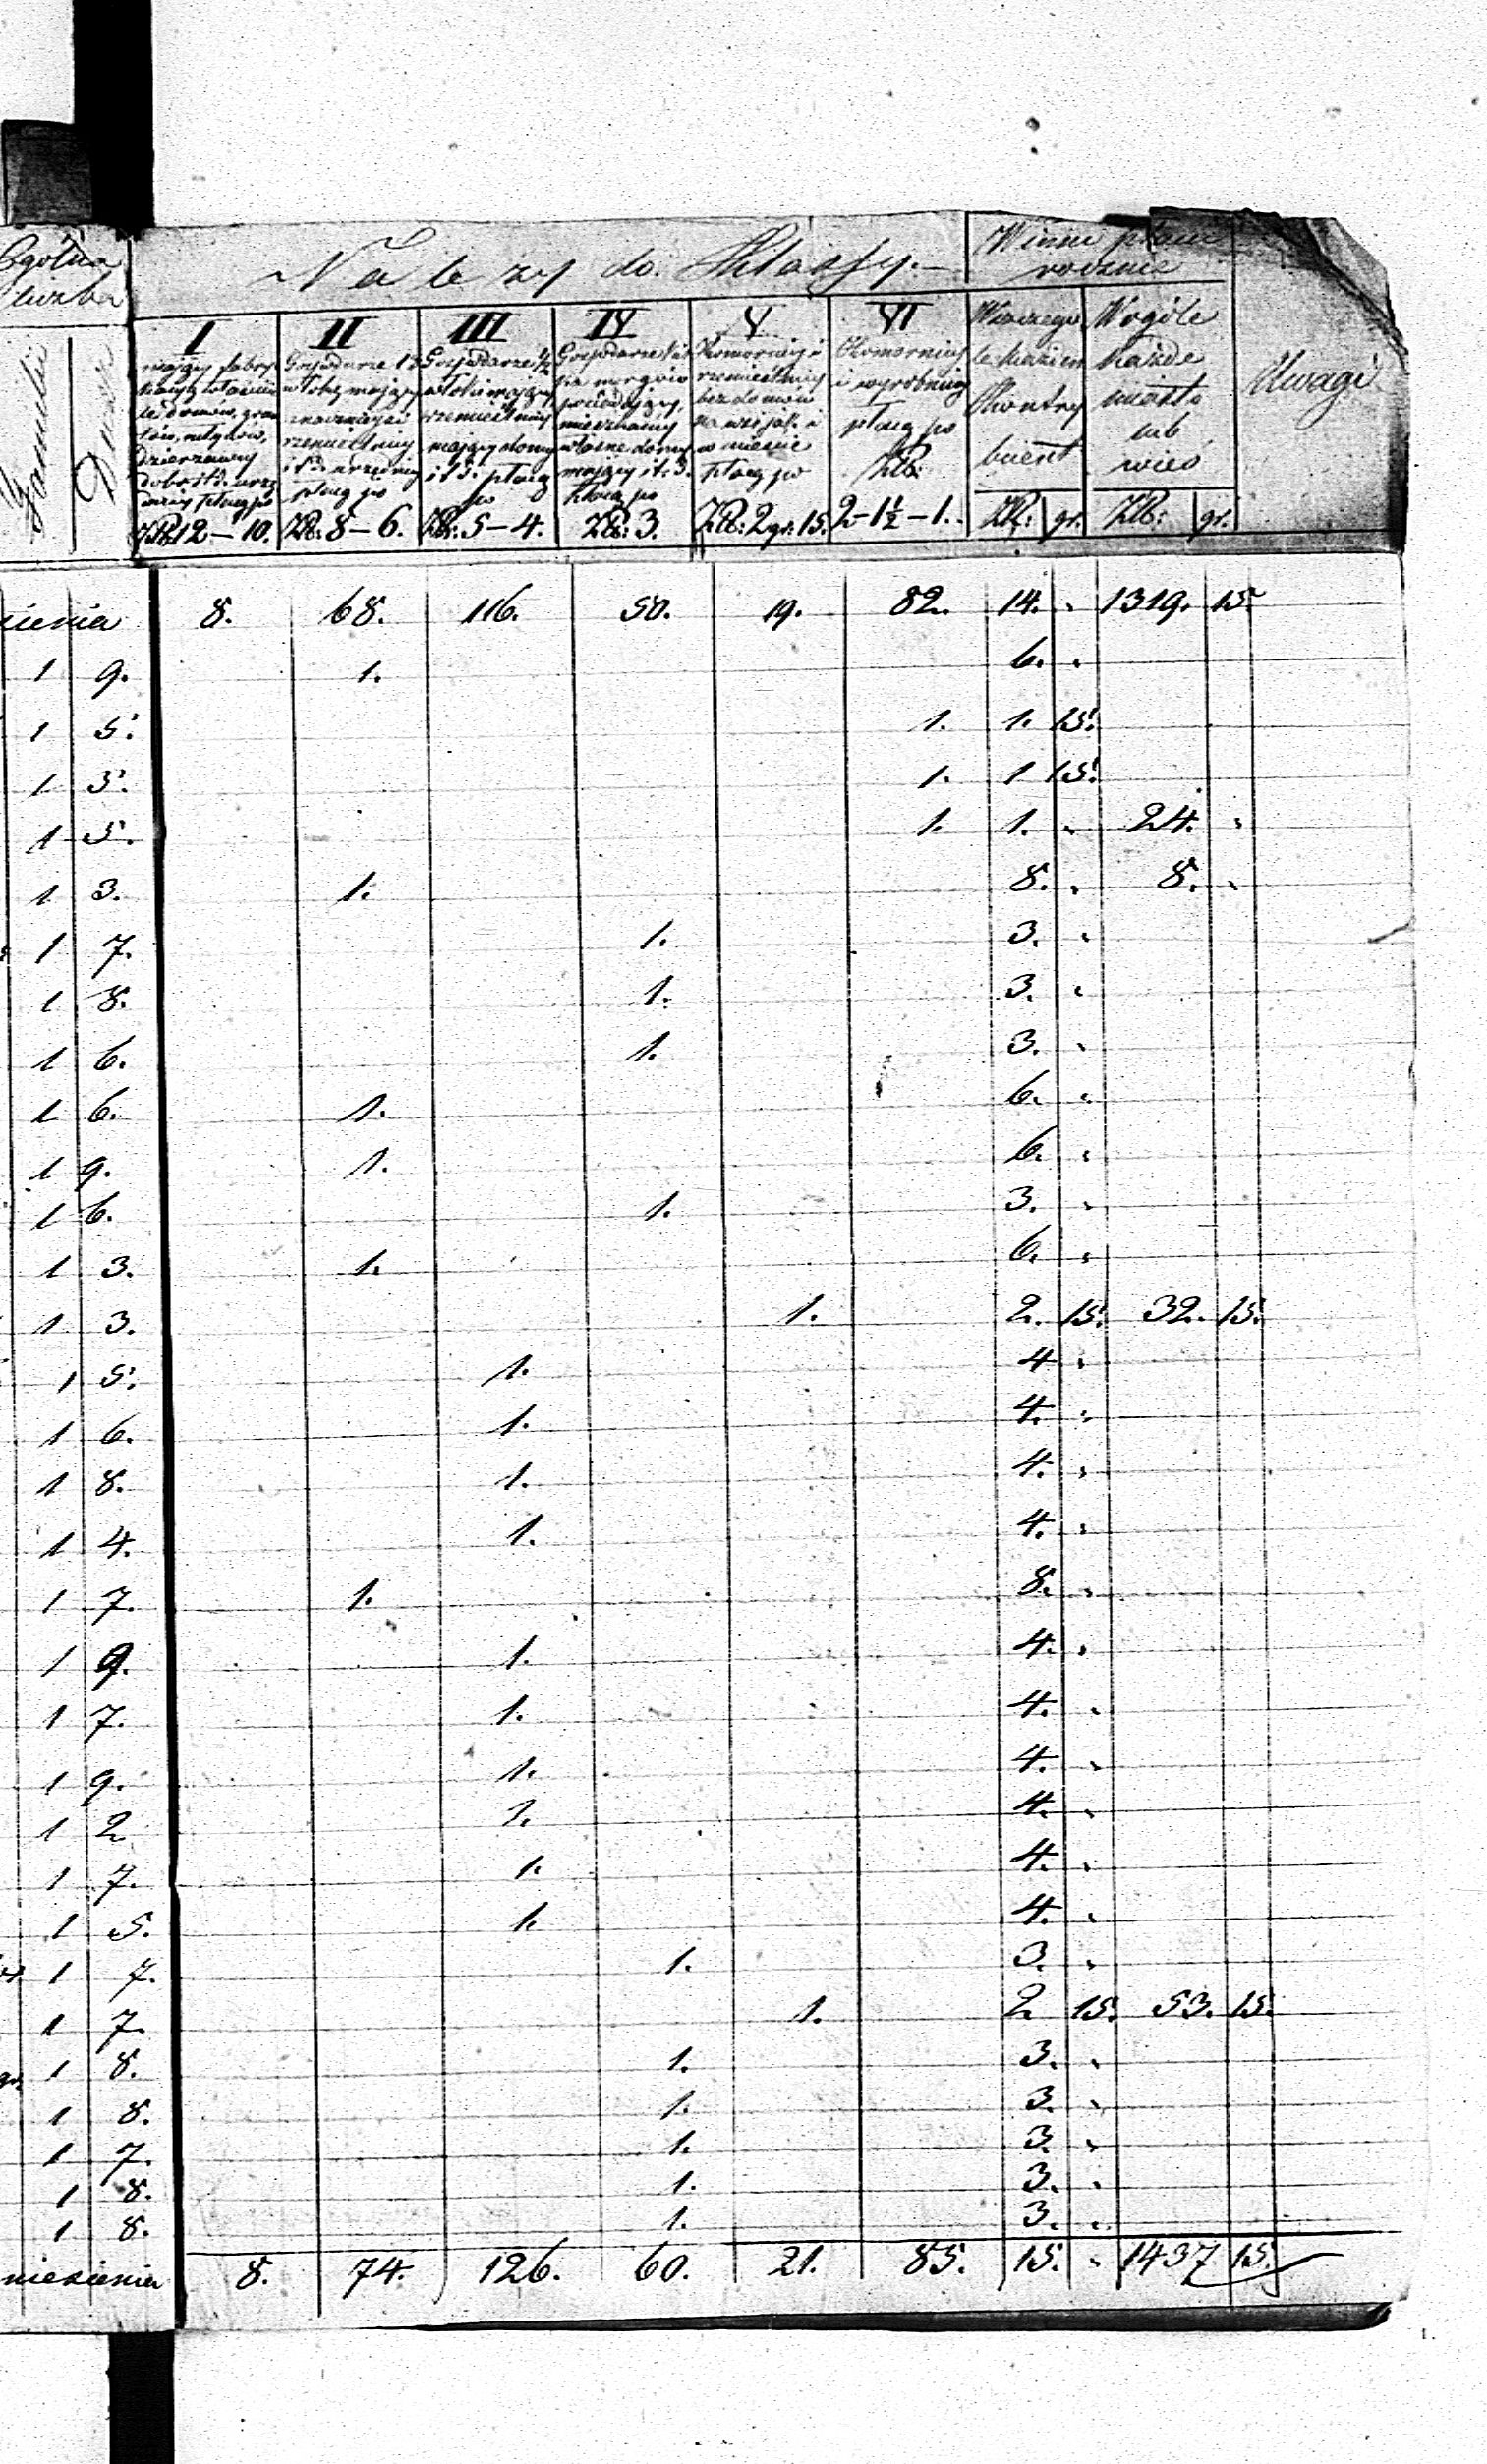 Ogólna liczba
Familii
Dusze
Należy do Klassy.
Winni płacić rocznie
Uwagi
I
II
III
IV
V
VI
mający
Gospodarze
włokę mający
rzemieślnicy
płacą po
Gospodarze ½
rzemieślnicy
mający domy
i t. d. płacą po
Gospodarze
mórgów
posiadający,
własne domy
mający i t. d.
płacą po
Komornicy i
rzemieślnicy
bez domów
płacą po
Komornicy
i wyrobnicy
płacą po
Złp:
Kontry
buent
W ogóle
każde
miasto
lub
wieś
Złp. 12 – 10. Złp. 8 – 6. Złp. 5 – 4. Złp. 3. Złp. 2 gr. 15. 2 – 1½ – 1. Złp. gr. Złp. gr.
sienia 8. 68. 116. 50. 19. 82. 14. " 1319. 15.
1 9. 1. 6. "
1 5. 1. 1. 15.
1 3. 1. 1 15.
1 5. 1. 1. " 24. "
1 3. 1. 8. " 8. "
1 7. 1. 3. "
1 8. 1. 3. "
1 6. 1. 3. "
1 6. 1. 6. "
1 9. 1. 6. "
1 6. 1. 3. "
1 3. 1. 6. "
1 3. 1. 2. 15. 32. 15.
1 5. 1. 4 "
1 6. 1. 4. "
1 8. 1. 4. "
1 4. 1. 4. "
1 7. 1. 8. "
1 9. 1. 4. "
1 7. 1. 4. "
1 9. 1. 4. "
1 2 1. 4. "
1 7. 1. 4. "
1 5. 1. 4. "
1 7. 1. 3. "
1 7. 1. 2 15. 53. 15.
1 8. 1. 3. "
1 8. 1. 3. "
1 7. 1. 3. "
1 8. 1. 3. "
1 8. 1. 3. "
niesienia 8. 74. 126. 60. 21. 85. 15. " 1437 15.